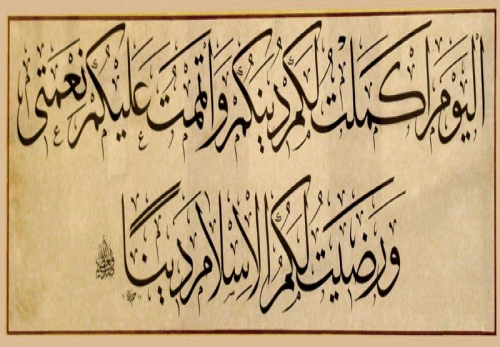 اليوم اكملت لكم دينكم واتممت عليكم نعمتى
ورضيت لكم الاسلام دينا